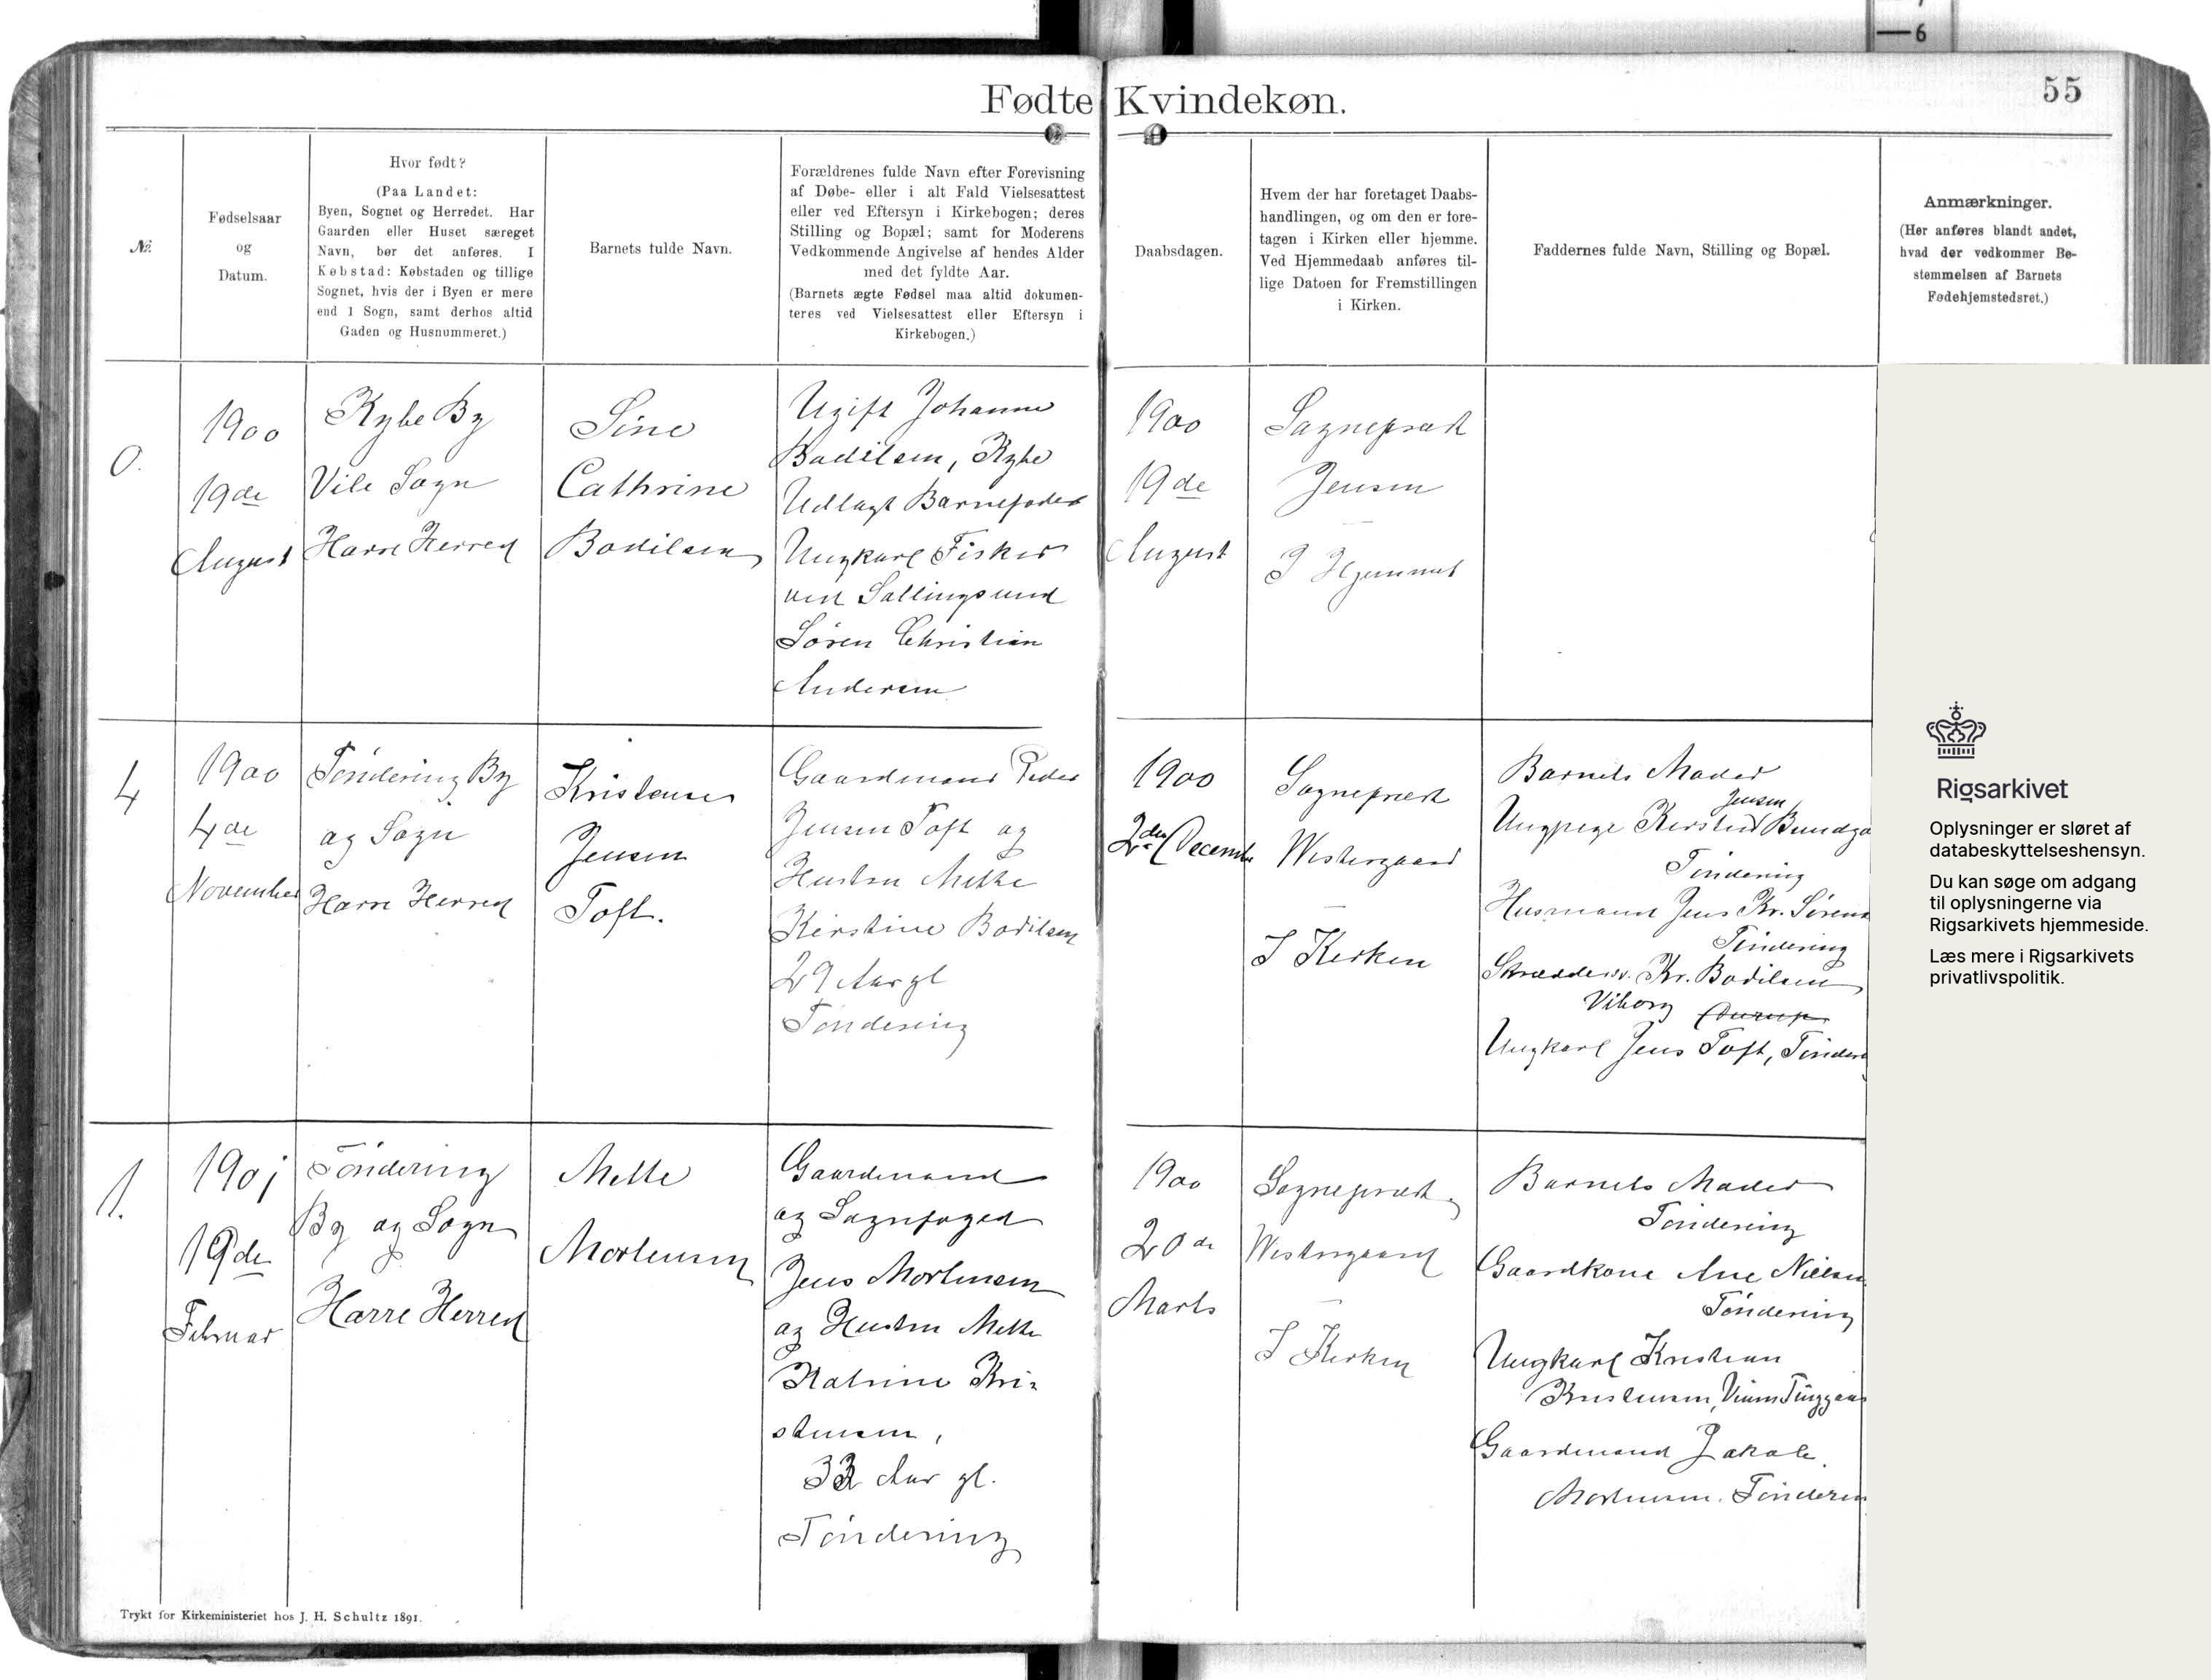 6
Fødte Kvindekøn.
55
№
Fødselsaar
og
Datum.
Hvor født?
(Paa Landet:
Byen, Sognet og Herredet. Har
Gaarden eller Huset særeget
Navn, bør det anføres. I
Købstad: Købstaden og tillige
Sognet, hvis der i Byen er mere
end 1 Sogn, samt derhos altid
Gaden og Husnummeret.)
Barnets fulde Navn.
Forældrenes fulde Navn efter Forevisning
af Døbe- eller i alt Fald Vielsesattest
eller ved Eftersyn i Kirkebogen; deres
Stilling og Bopæl; samt for Moderens
Vedkommende Angivelse af hendes Alder
med det fyldte Aar.
(Barnets ægte Fødsel maa altid dokumen-
teres ved Vielsesattest eller Eftersyn i
Kirkebogen.)
Daabsdagen.
Hvem der har foretaget Daabs-
handlingen, og om den er fore-
tagen i Kirken eller hjemme.
Ved Hjemmedaab anføres til-
lige Datoen for Fremstillingen
i Kirken.
Faddernes fulde Navn, Stilling og Bopæl.
Anmærkninger.
(Her anføres blandt andet,
hvad der vedkommer Be-
stemmelsen af Barnets
Fødehjemstedsret.)
0.
1900
19de
August
Kybe By
Vile Sogn
Harre Herred
Sine
Cathrine
Bodilsen
Ugift Johanne
Bodilsen, Kybe
Udlagt Barnefader
Ungkarl Fisker
ved Sallingsund
Søren Christian
Andersen
1900
19de
August
Sognepræst
Jensen
I Hjemmet
4
1900
4de
November
Tøndering By
og Sogn
Harre Herred
Kristense
Jensen
Toft.
Gaardmand Peder
Jensen Toft og
Hustru Mette
Kirstine Bodilsen
29 Aar gl
Tøndering
1900
2den December
Sognepræst
Westergaard
I Kirken
Barnets Moder
Jensen
Ungpige Kirsten Bundga
Tøndering
Husmand Jens Kr. Sørens
Tøndering
Skræddersv. Kr. Bodilsen
Viborg Durup
Ungkarl Jens Toft, Tønderi
1.
1901
19de
Februar
Tøndering
By og Sogn
Harre Herred
Mette
Mortensen
Gaardmand
og Sognefoged
Jens Mortensen
og Hustru Mette
Katrine Kri-
stensen,
33 Aar gl.
Tøndering
1900
20de
Marts
Sognepræst
Westergaard
I Kirken
Barnets Moder
Tøndering
Gaardkone Ane Nielsen
Tøndering
Ungkarl Kristian
Kristensen, Vium Tinggaar
Gaardmand Jakob
Mortensen. Tønderin
Trykt for Kirkeministeriet hos J. H. Schultz 1891.
Rigsarkivet
Oplysninger er sløret af
databeskyttelseshensyn.
Du kan søge om adgang
til oplysningerne via
Rigsarkivets hjemmeside.
Læs mere i Rigsarkivets
privatlivspolitik.